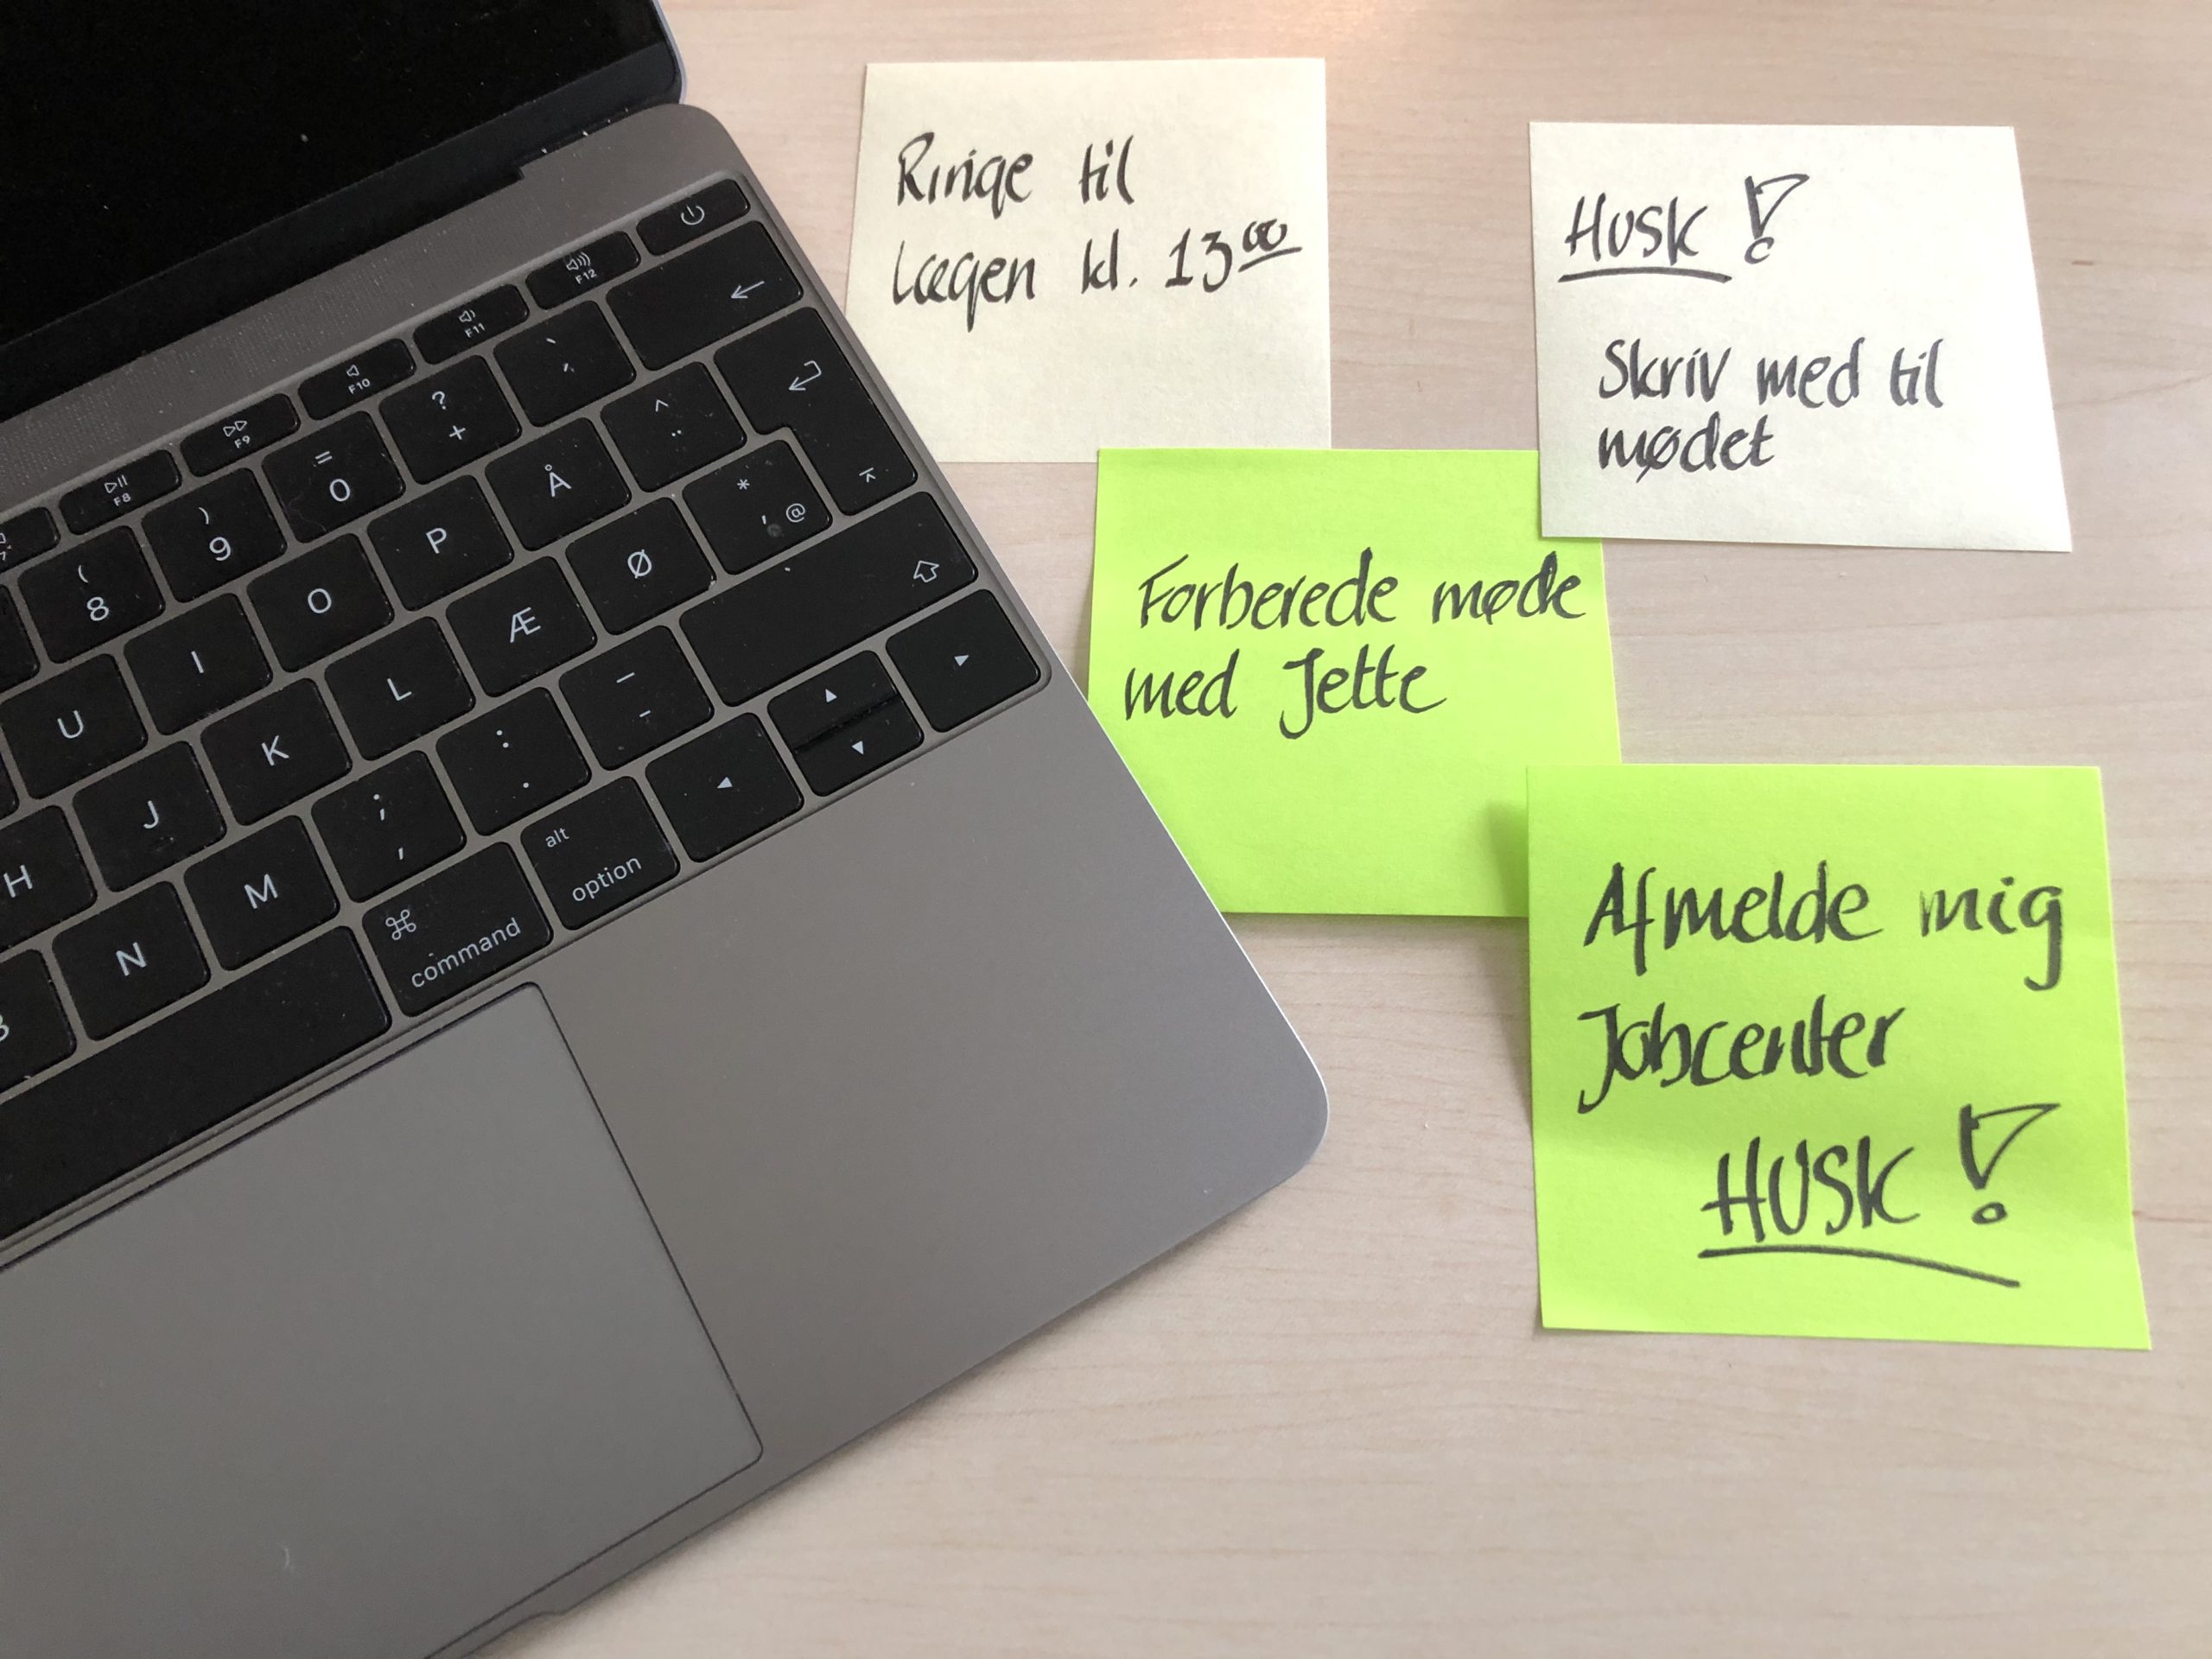 Ringe til
Lægen kl. 13⁰⁰
HUSK !
Skriv med til
mødet
Forberede møde
med Jette
Afmelde mig
Jobcenter
HUSK !
F12
F11
F10
F9
F8
( 8
) 9
= 0
? +
` ´
U
I
O
P
Å
^ ¨
H
J
K
L
Æ
Ø
* ' @
B
N
M
; ,
: .
_ -
⌘
command
alt
option